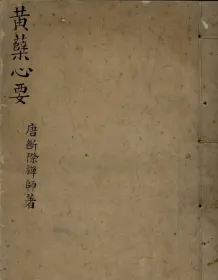 黃蘗心要
唐斷際禪師著